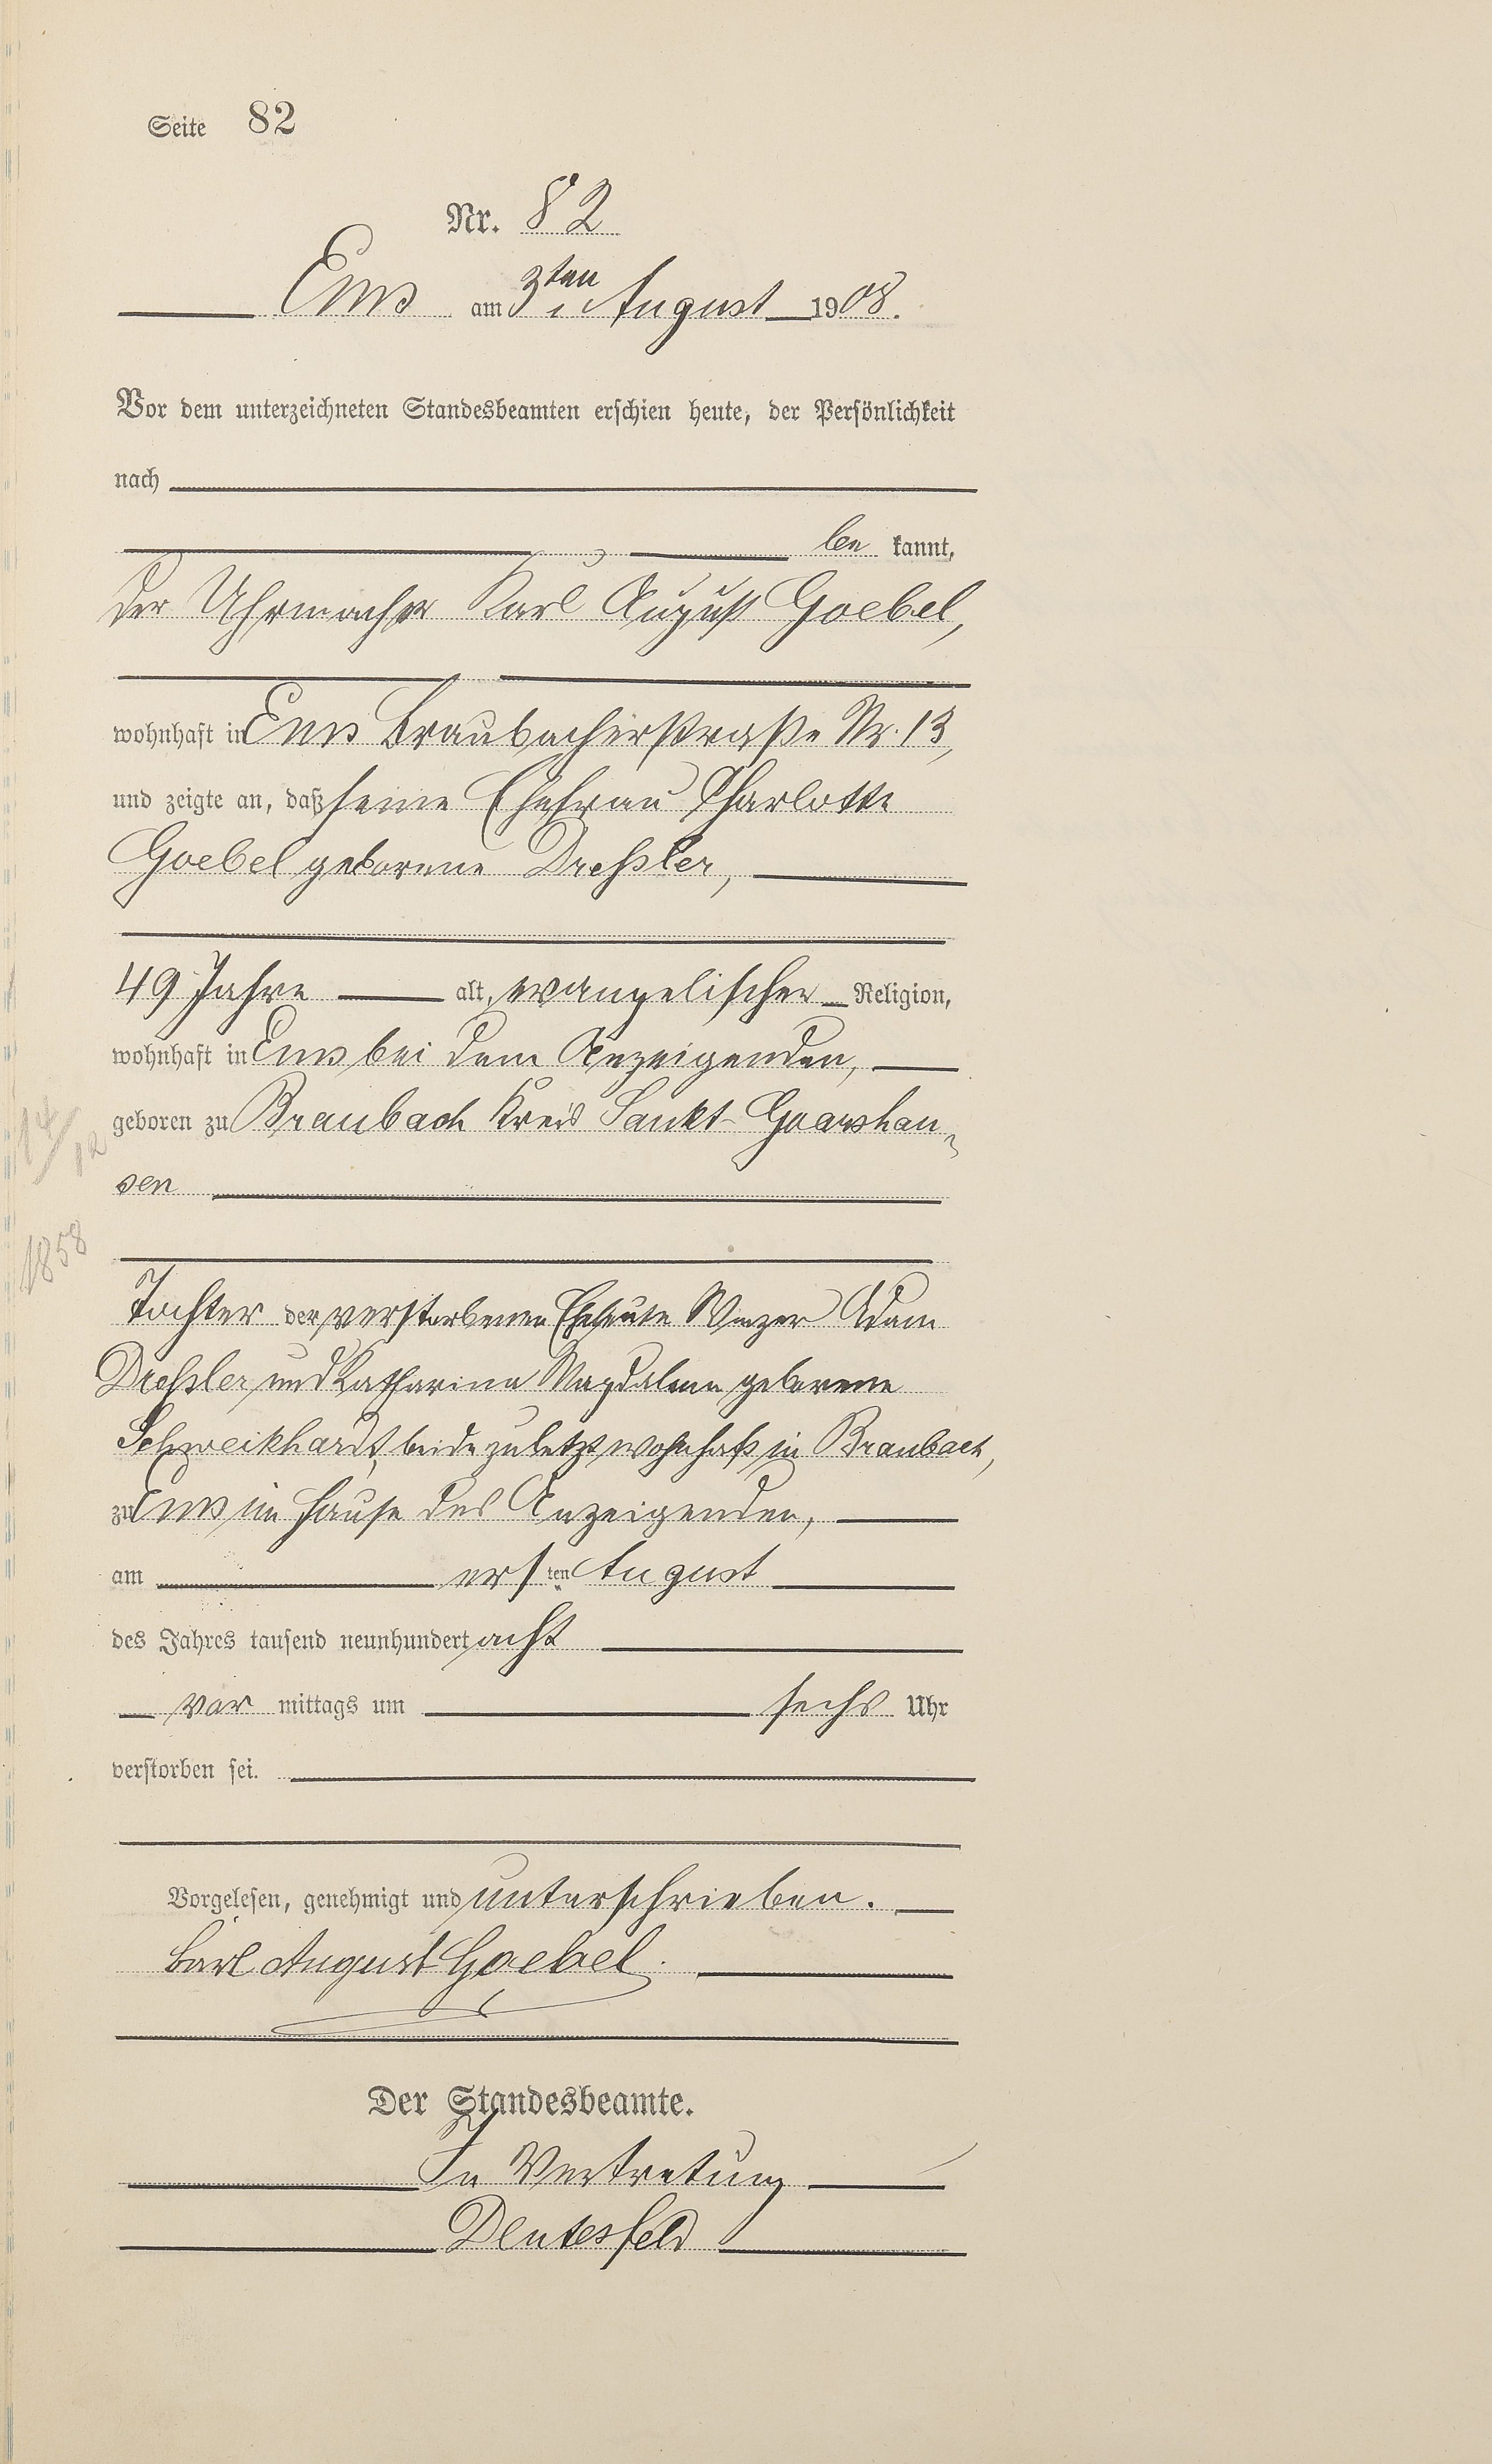 Seite 82
Nr. 82
Ems am 3ten August 1908.
Vor dem unterzeichneten Standesbeamten erschien heute, der Persönlichkeit
nach
be kannt,
der Uhrmacher Karl August Goebel,
wohnhaft in Ems Braubacherstraße Nr. 13,
und zeigte an, daß seine Ehefrau Charlotte
Goebel geborene Dreßler,
49 Jahre alt, evangelischer Religion,
wohnhaft in Ems bei dem Anzeigenden,
geboren zu Braubach Kreis Sankt-Goarshau-
14/12
sen
1858
Tochter der verstorbenen Eheleute Winzer Adam
Dreßler und Katharina Magdalena geborene
Schweikhardt, beide zuletzt wohnhaft in Braubach,
zu Ems im Hause des Anzeigenden,
am ersten August
des Jahres tausend neunhundert acht
vor mittags um sechs Uhr
verstorben sei.
Vorgelesen, genehmigt und unterschrieben.
Carl August Goebel.
Der Standesbeamte.
In Vertretung